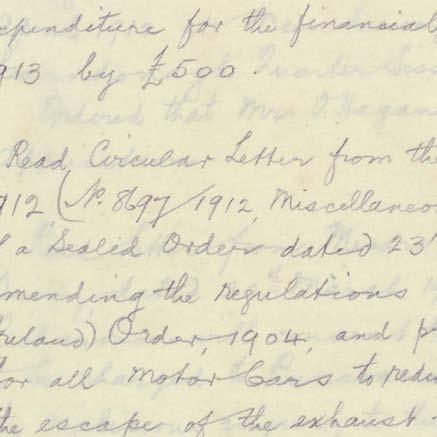 ependiture for the financial
913 by £500.
Read Circular Letter from the
912 (No. 8697/1912, Miscellaneo
f a Sealed Order dated 23
mending the regulations
reland) Order, 1904, and p
for all Motor Cars to redu
the escape of the exhaust